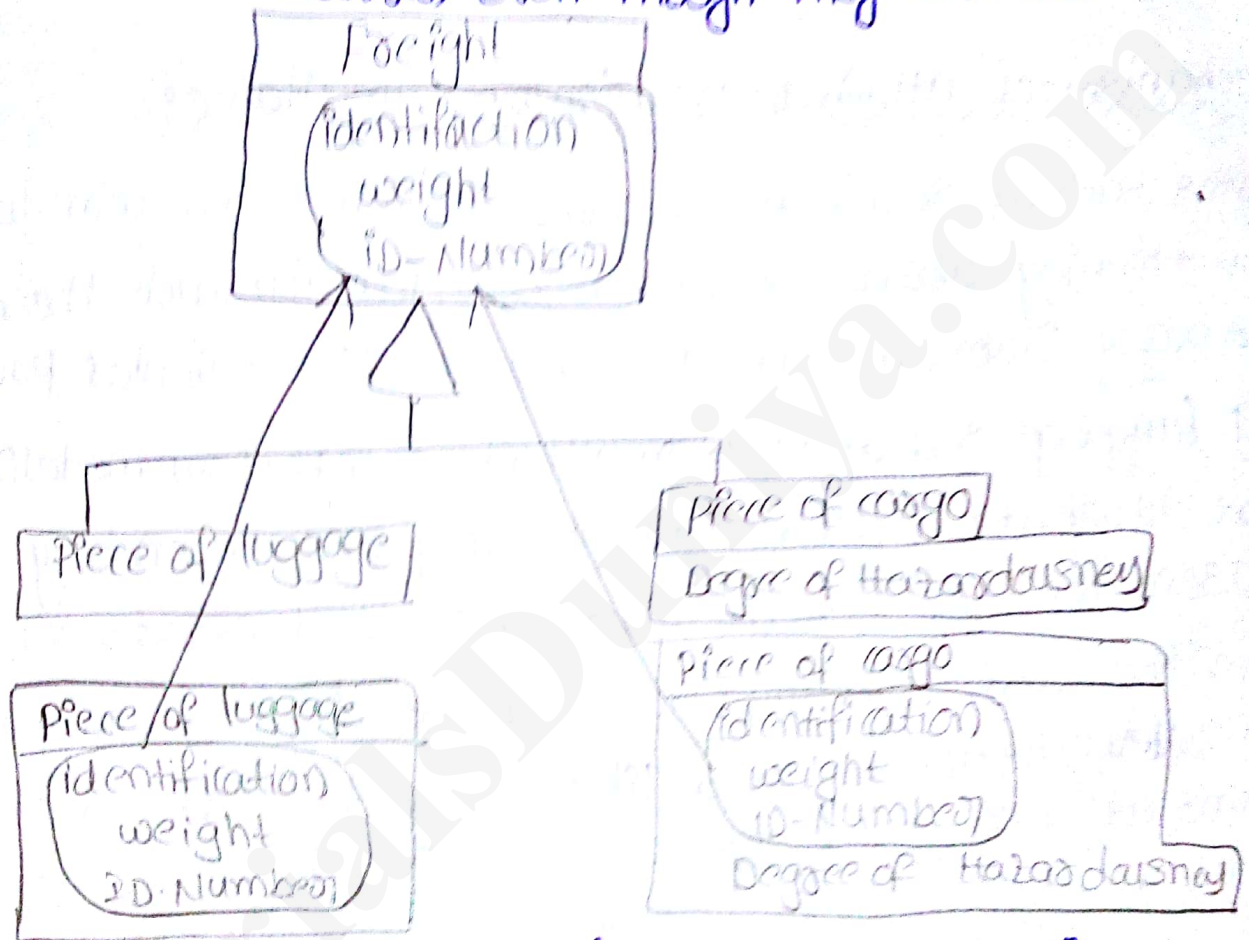 even though they
Freight
identifaction
weight
iD-Number
Piece of luggage
Piece of cargo
Degree of Hazardousness
Piece of luggage
identification
weight
ID.Number
piece of cargo
identification
weight
iD-Number
Deggree of Hazardousness
ialsDuniya.com